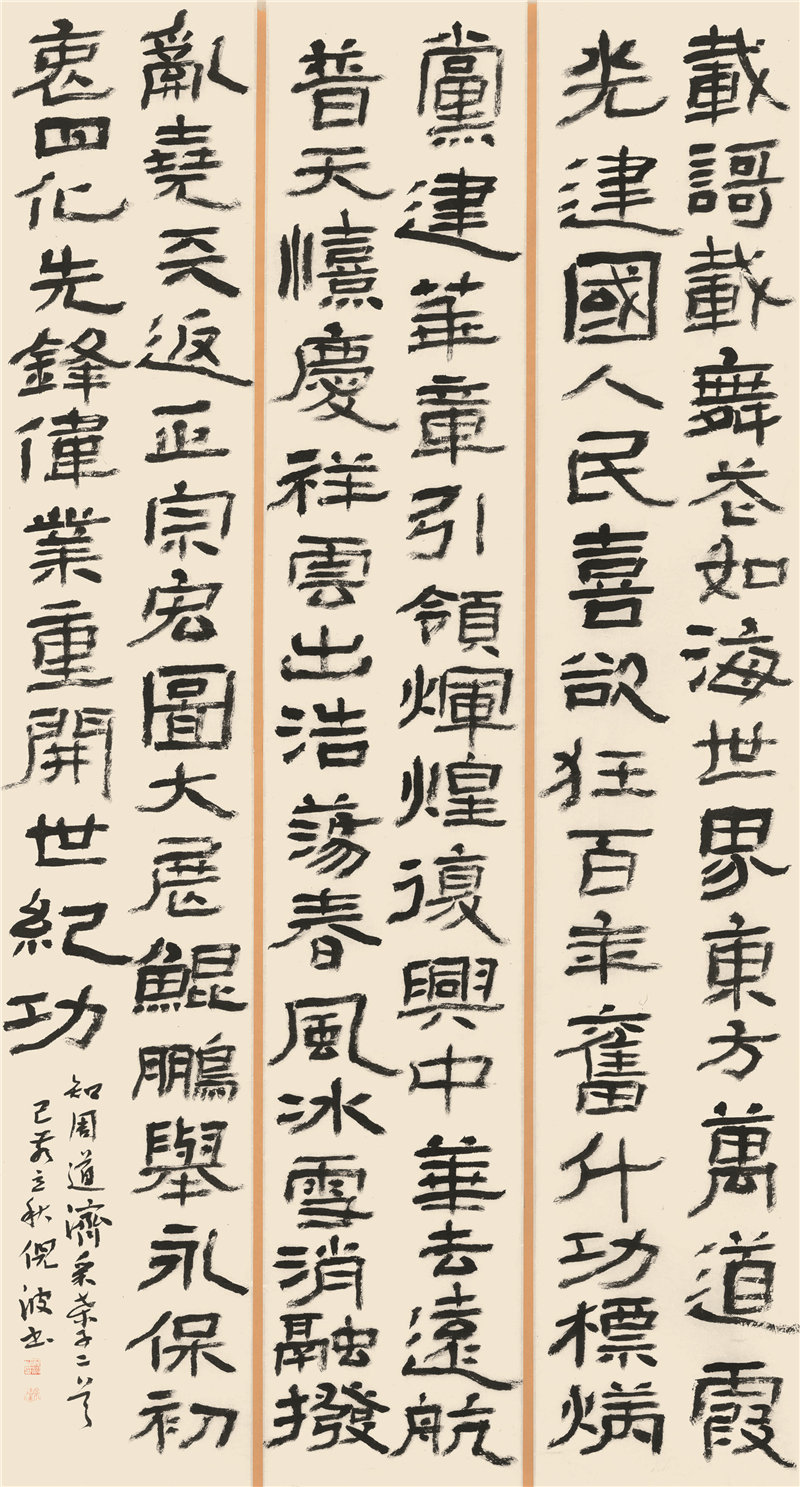 載謌載舞花如海世界東方萬道霞
光建國人民喜欲狂百年奮斗功標炳
黨建華章引領輝煌復興中華去遠航
普天憘慶祥雲出浩蕩春風冰雪消融撥
亂堯天返正宗宏圖大展鯤鵬舉永保初
衷四化先鋒偉業重開世紀功
知周道濟采桑子二首
己亥立秋倪波书